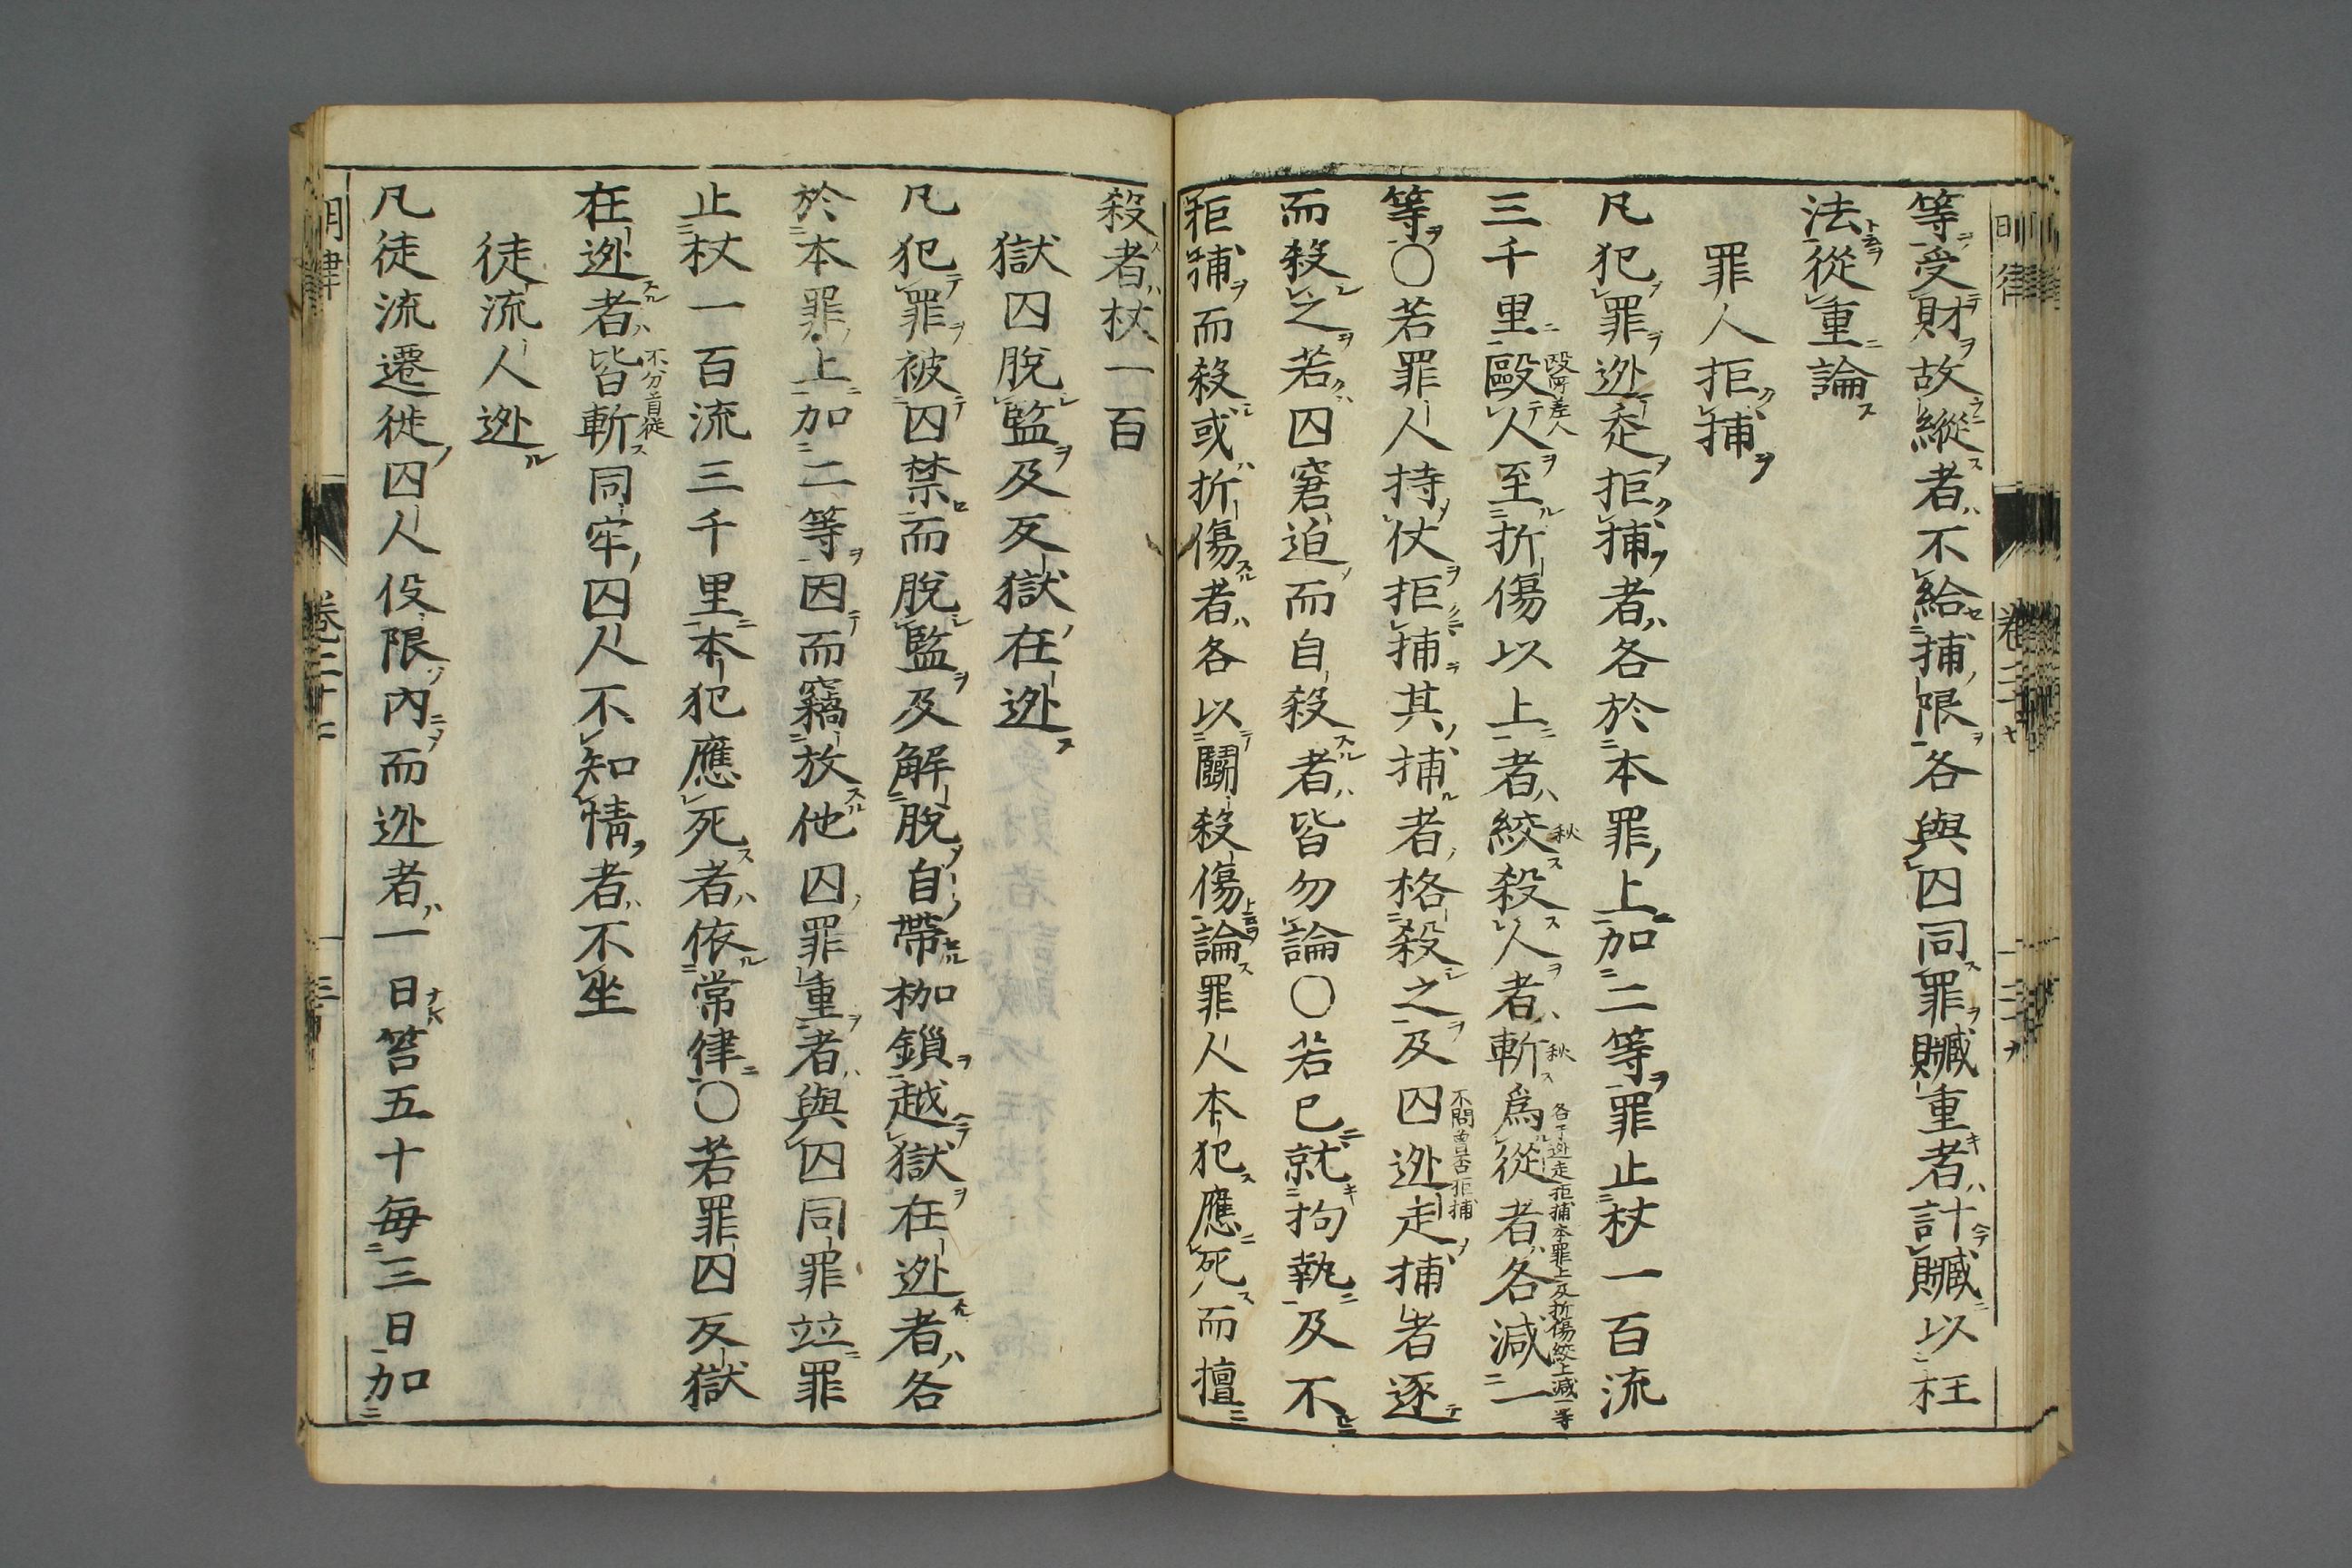 等受財故縱者不給捕限各與囚同罪贓重者計贓以枉
法從重論
罪人拒捕
凡犯罪逃走拒捕者各於本罪上加二等罪止杖一百流
三千里毆人至折傷以上者絞殺人者斬爲從者各減一
毆所差人
秋
秋
各于逃走拒捕本罪上及折傷絞上減一等
等〇若罪人持仗拒捕其捕者格殺之及囚逃走捕者逐
不問曾否拒捕
而殺之若囚窘迫而自殺者皆勿論〇若已就拘執及不
拒捕而殺或折傷者各以鬪殺傷論罪人本犯應死而擅
殺者杖一百
獄囚脫監及反獄在逃
凡犯罪被囚禁而脫監及解脫自帶枷鎖越獄在逃者各
於本罪上加二等因而竊放他囚罪重者與囚同罪竝罪
止杖一百流三千里本犯應死者依常律〇若罪囚反獄
在逃者皆斬同牢囚人不知情者不坐
不分首從
徒流人逃
凡徒流遷徙囚人役限內而逃者一日笞五十每三日加
明律
卷二十七